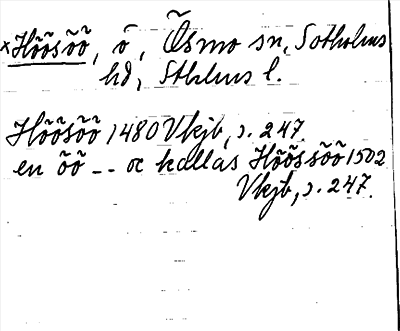 ×Hõõsõõ, ö, Õsmo sn, Sotholms
hd, Sthlms l.
Hõõsõõ 1480 Vkjb, s. 247.
en õõ -- oc kallas Hõõssõõ 1502
Vkjb, s. 247.